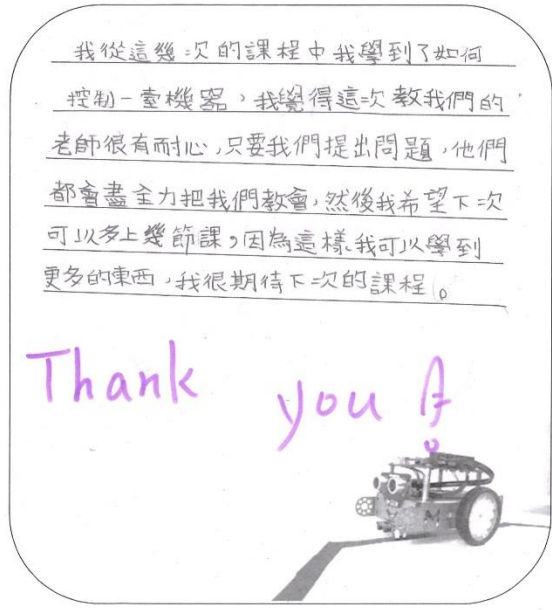 我從這幾次的課程中我學到了如何
控制一臺機器，我覺得這次教我們的
老師很有耐心，只要我們提出問題，他們
都會盡全力把我們教會，然後我希望下次
可以多上幾節課，因為這樣我可以學到
更多的東西，我很期待下次的課程。
Thank you !